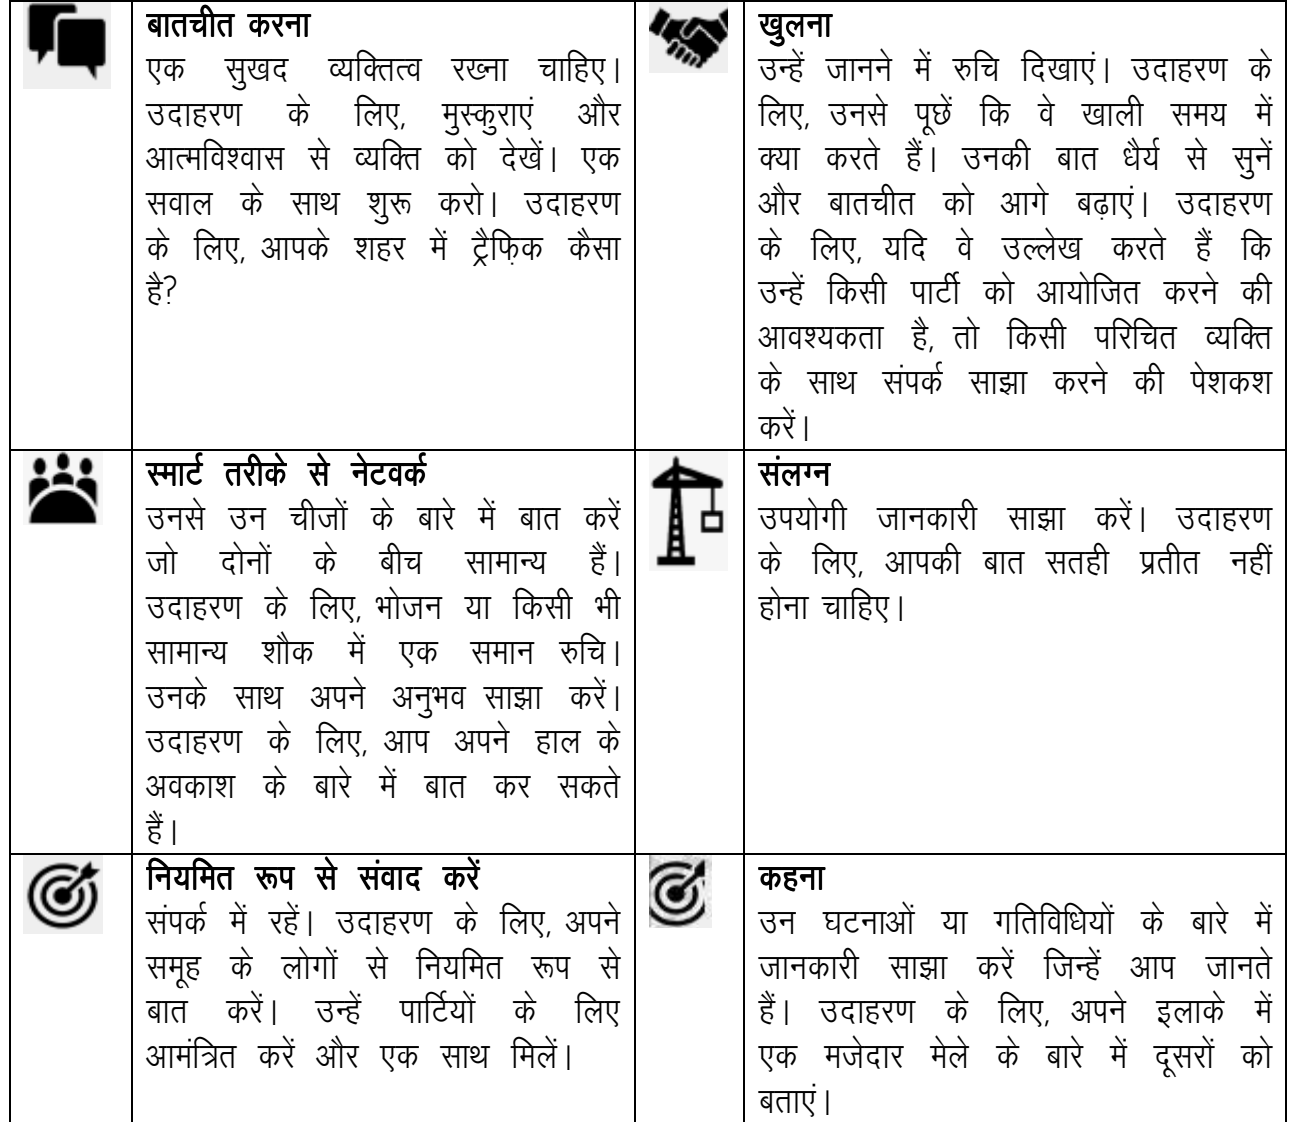 बातचीत करना
एक सुखद व्यक्तित्व रख्ना चाहिए।
उदाहरण के लिए, मुस्कुराएं और
आत्मविश्वास से व्यक्ति को देखें। एक
सवाल के साथ शुरू करो। उदाहरण
के लिए, आपके शहर में ट्रैफि़क कैसा
है?
खुलना
उन्हें जानने में रुचि दिखाएं। उदाहरण के
लिए, उनसे पूछें कि वे खाली समय में
क्या करते हैं। उनकी बात धैर्य से सुनें
और बातचीत को आगे बढ़ाएं। उदाहरण
के लिए, यदि वे उल्लेख करते हैं कि
उन्हें किसी पार्टी को आयोजित करने की
आवश्यकता है, तो किसी परिचित व्यक्ति
के साथ संपर्क साझा करने की पेशकश
करें।
स्मार्ट तरीके से नेटवर्क
उनसे उन चीजों के बारे में बात करें
जो दोनों के बीच सामान्य हैं।
उदाहरण के लिए, भोजन या किसी भी
सामान्य शौक में एक समान रुचि।
उनके साथ अपने अनुभव साझा करें।
उदाहरण के लिए, आप अपने हाल के
अवकाश के बारे में बात कर सकते
हैं।
संलग्न
उपयोगी जानकारी साझा करें। उदाहरण
के लिए, आपकी बात सतही प्रतीत नहीं
होना चाहिए।
नियमित रूप से संवाद करें
संपर्क में रहें। उदाहरण के लिए, अपने
समूह के लोगों से नियमित रूप से
बात करें। उन्हें पार्टियों के लिए
आमंत्रित करें और एक साथ मिलें।
कहना
उन घटनाओं या गतिविधियों के बारे में
जानकारी साझा करें जिन्हें आप जानते
हैं। उदाहरण के लिए, अपने इलाके में
एक मजेदार मेले के बारे में दूसरों को
बताएं।